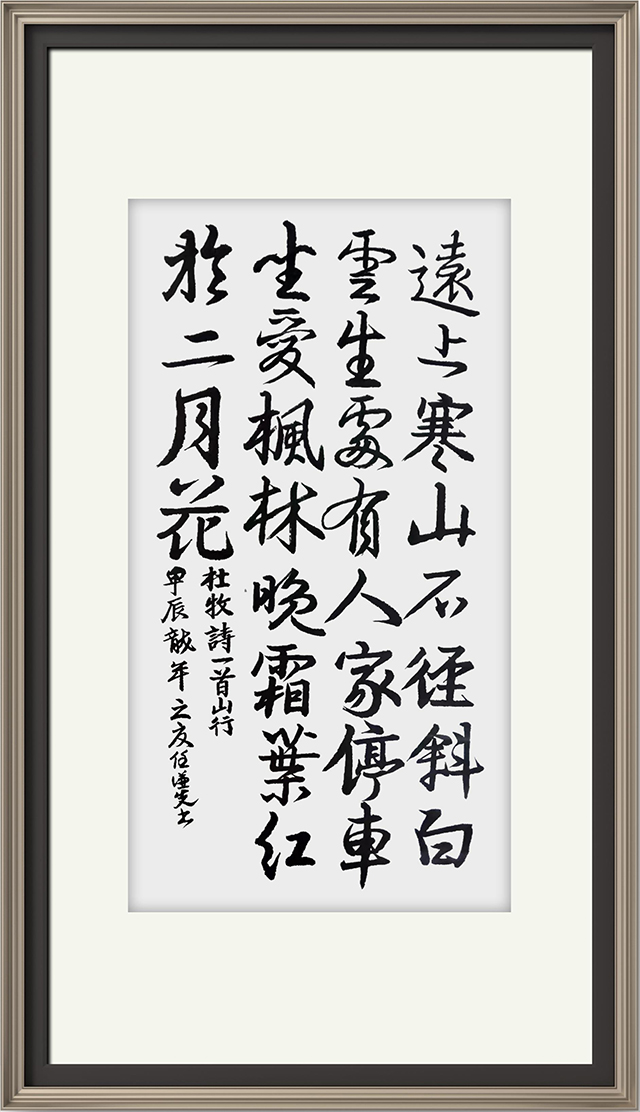 遠上寒山石徑斜白
雲生處有人家停車
坐愛楓林晚霜葉紅
於二月花
杜牧詩一首山行
甲辰龍年之夏任